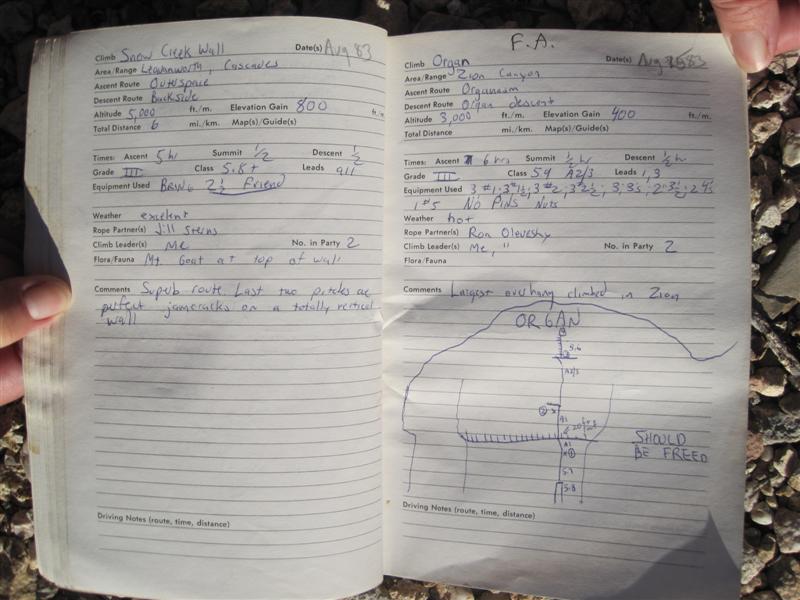 Climb Snow Creek Wall Date(s) Aug 83
Area/Range Leavenworth, Cascades
Ascent Route Outerspace
Descent Route Backside
Altitude 5,000 ft./m. Elevation Gain 800 ft./m.
Total Distance 6 mi./km. Map(s)/Guide(s)
Times: Ascent 5 hr Summit 1/2 Descent 1/2
Grade III Class 5.8+ Leads all
Equipment Used BRING 2 1/2 Friend
Weather excelent
Rope Partner(s) Jill Sterns
Climb Leader(s) Me No. in Party 2
Flora/Fauna Mt. Goat at top of wall
Comments Superb route. Last two pitches are
perfect jamcracks on a totally vertical
wall
Driving Notes (route, time, distance)
F.A.
Climb Organ Date(s) Aug 83
Area/Range Zion Canyon
Ascent Route Organasm
Descent Route Organ descent
Altitude 3,000 ft./m. Elevation Gain 400 ft./m.
Total Distance mi./km. Map(s)/Guide(s)
Times: Ascent 6 hrs Summit 1/2 hr Descent 1/2 hr
Grade III Class 5.9 A2/3 Leads 1,3
Equipment Used 3 #1, 3 #1 1/2, 3 #2, 3 #2 1/2, 3, 3's, 2 3 1/2, 2 4's
1 #5 NO PINS NUTS
Weather hot
Rope Partner(s) Ron Olevsky
Climb Leader(s) Me, " No. in Party 2
Flora/Fauna
Comments Largest overhang climbed in Zion
ORGAN
5.6
A2/3
2
A1
20
A1
1
5.9
5.8
SHOULD
BE FREED
Driving Notes (route, time, distance)